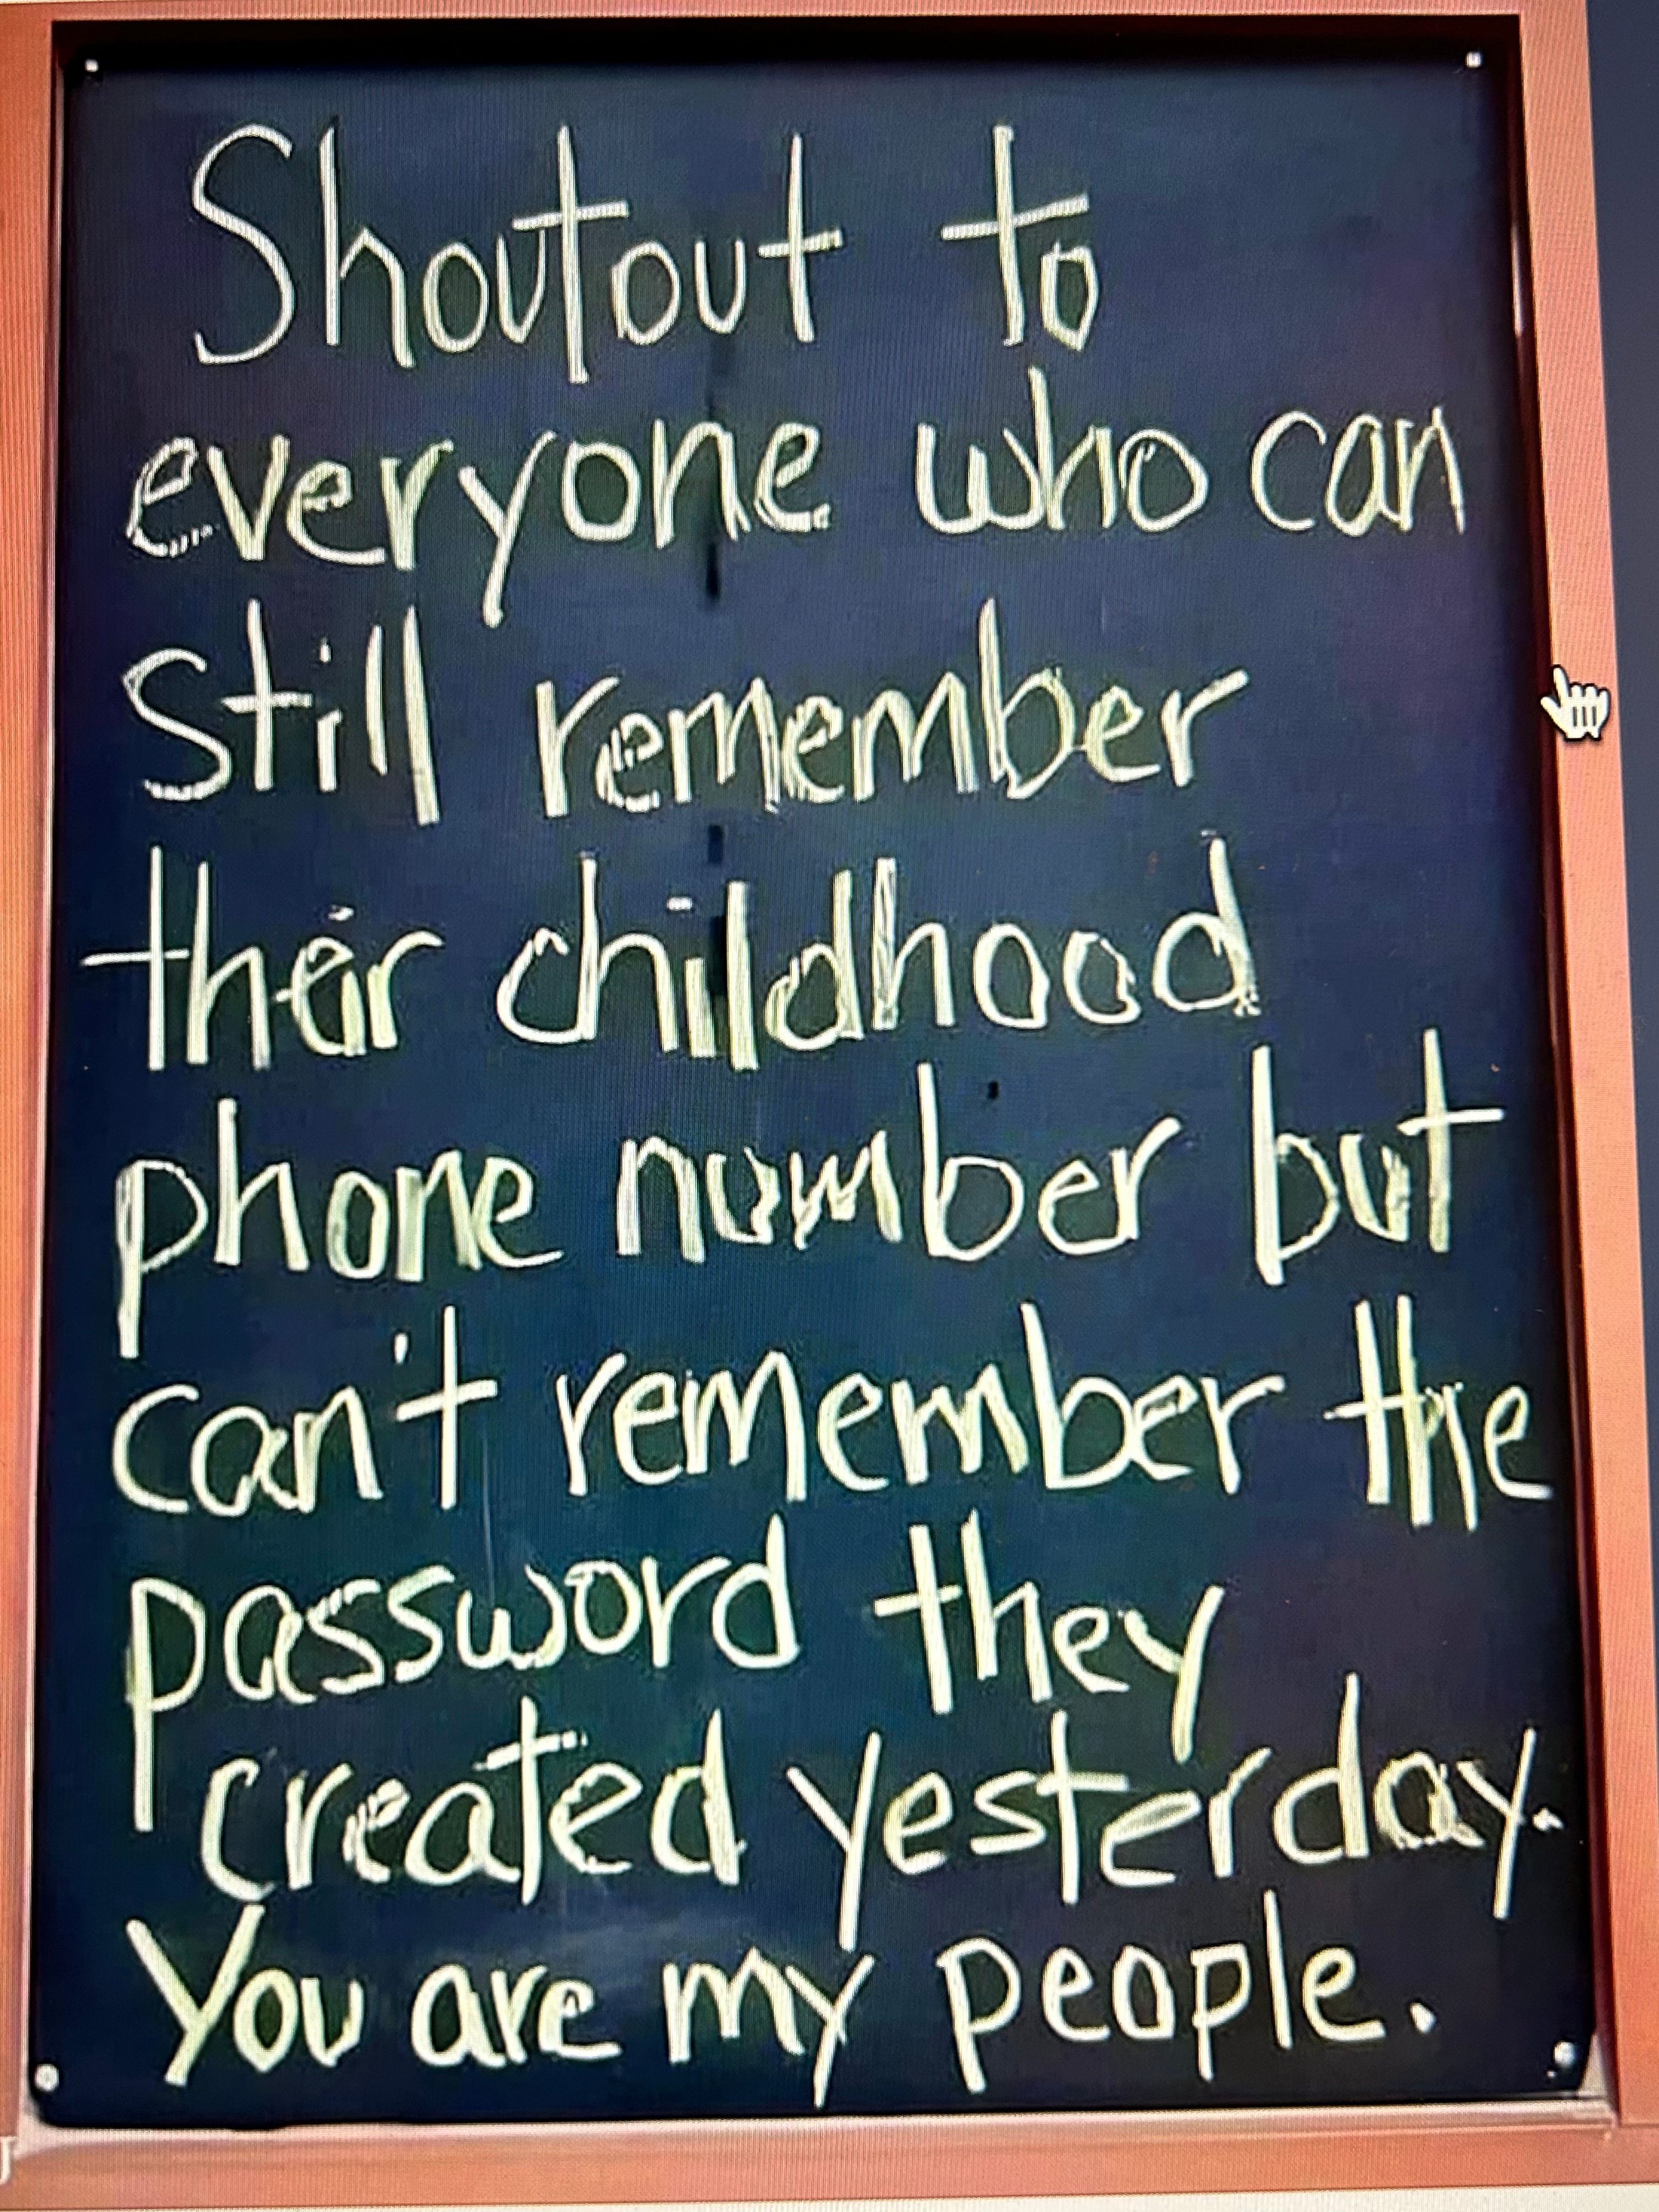 Shoutout to
everyone who can
still remember
their childhood
phone number but
can't remember the
password they
created yesterday.
You are my people.